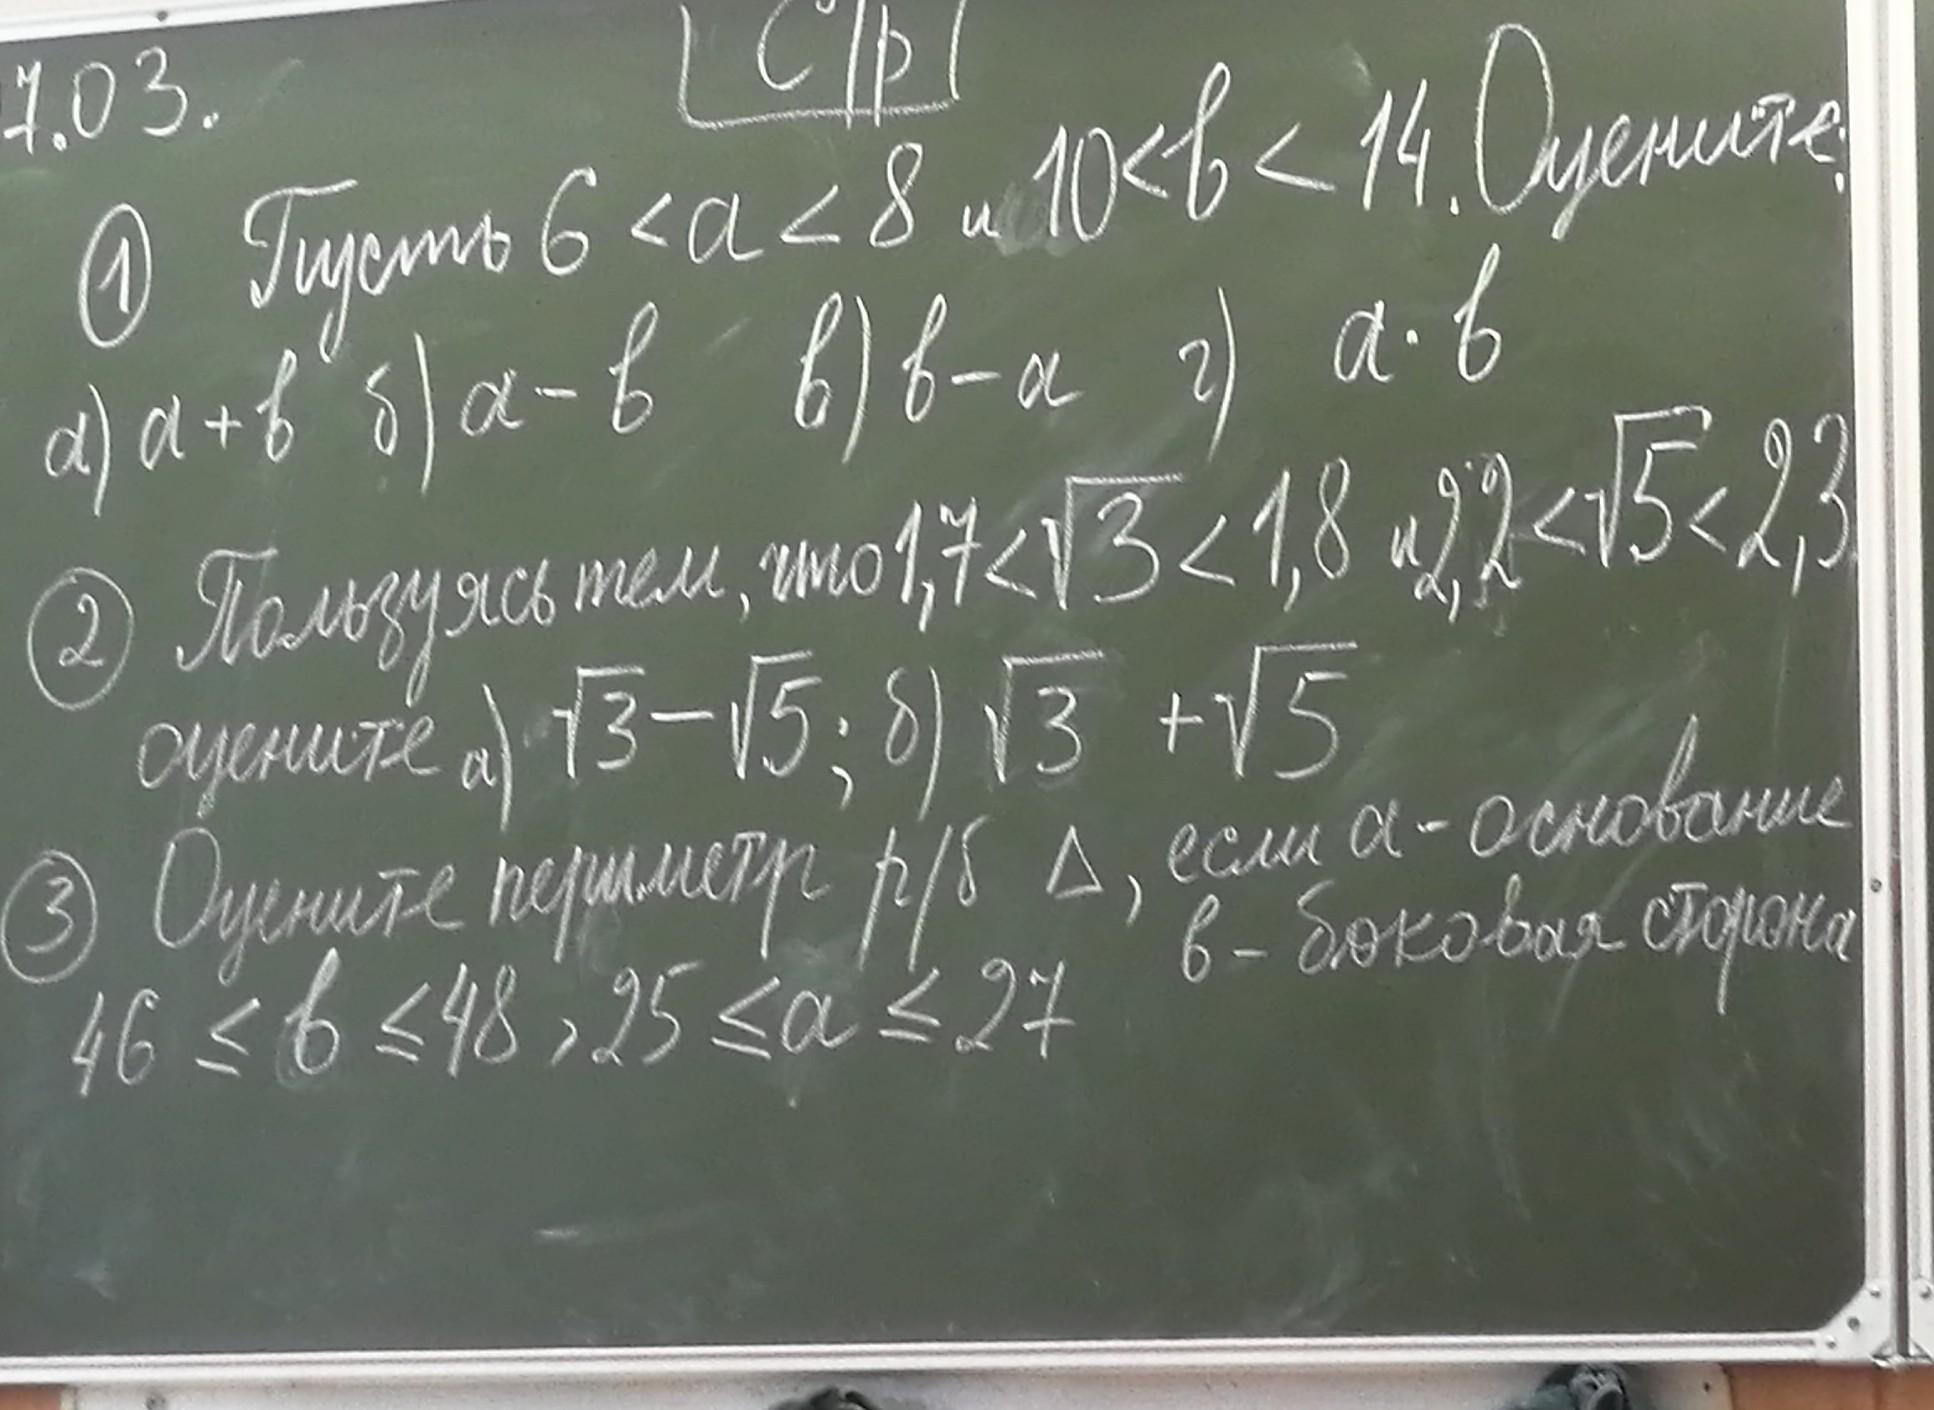 7.03.
С/р
① Пусть 6 < a < 8 и 10 < b < 14. Оцените:
а) a + b б) a - b в) b - a г) a · b
② Пользуясь тем, что 1,7 < √3 < 1,8 и 2,2 < √5 < 2,3
оцените а) √3 - √5; б) √3 + √5
③ Оцените периметр р/б Δ, если a - основание
b - боковая сторона
46 ≤ b ≤ 48, 25 ≤ a ≤ 27